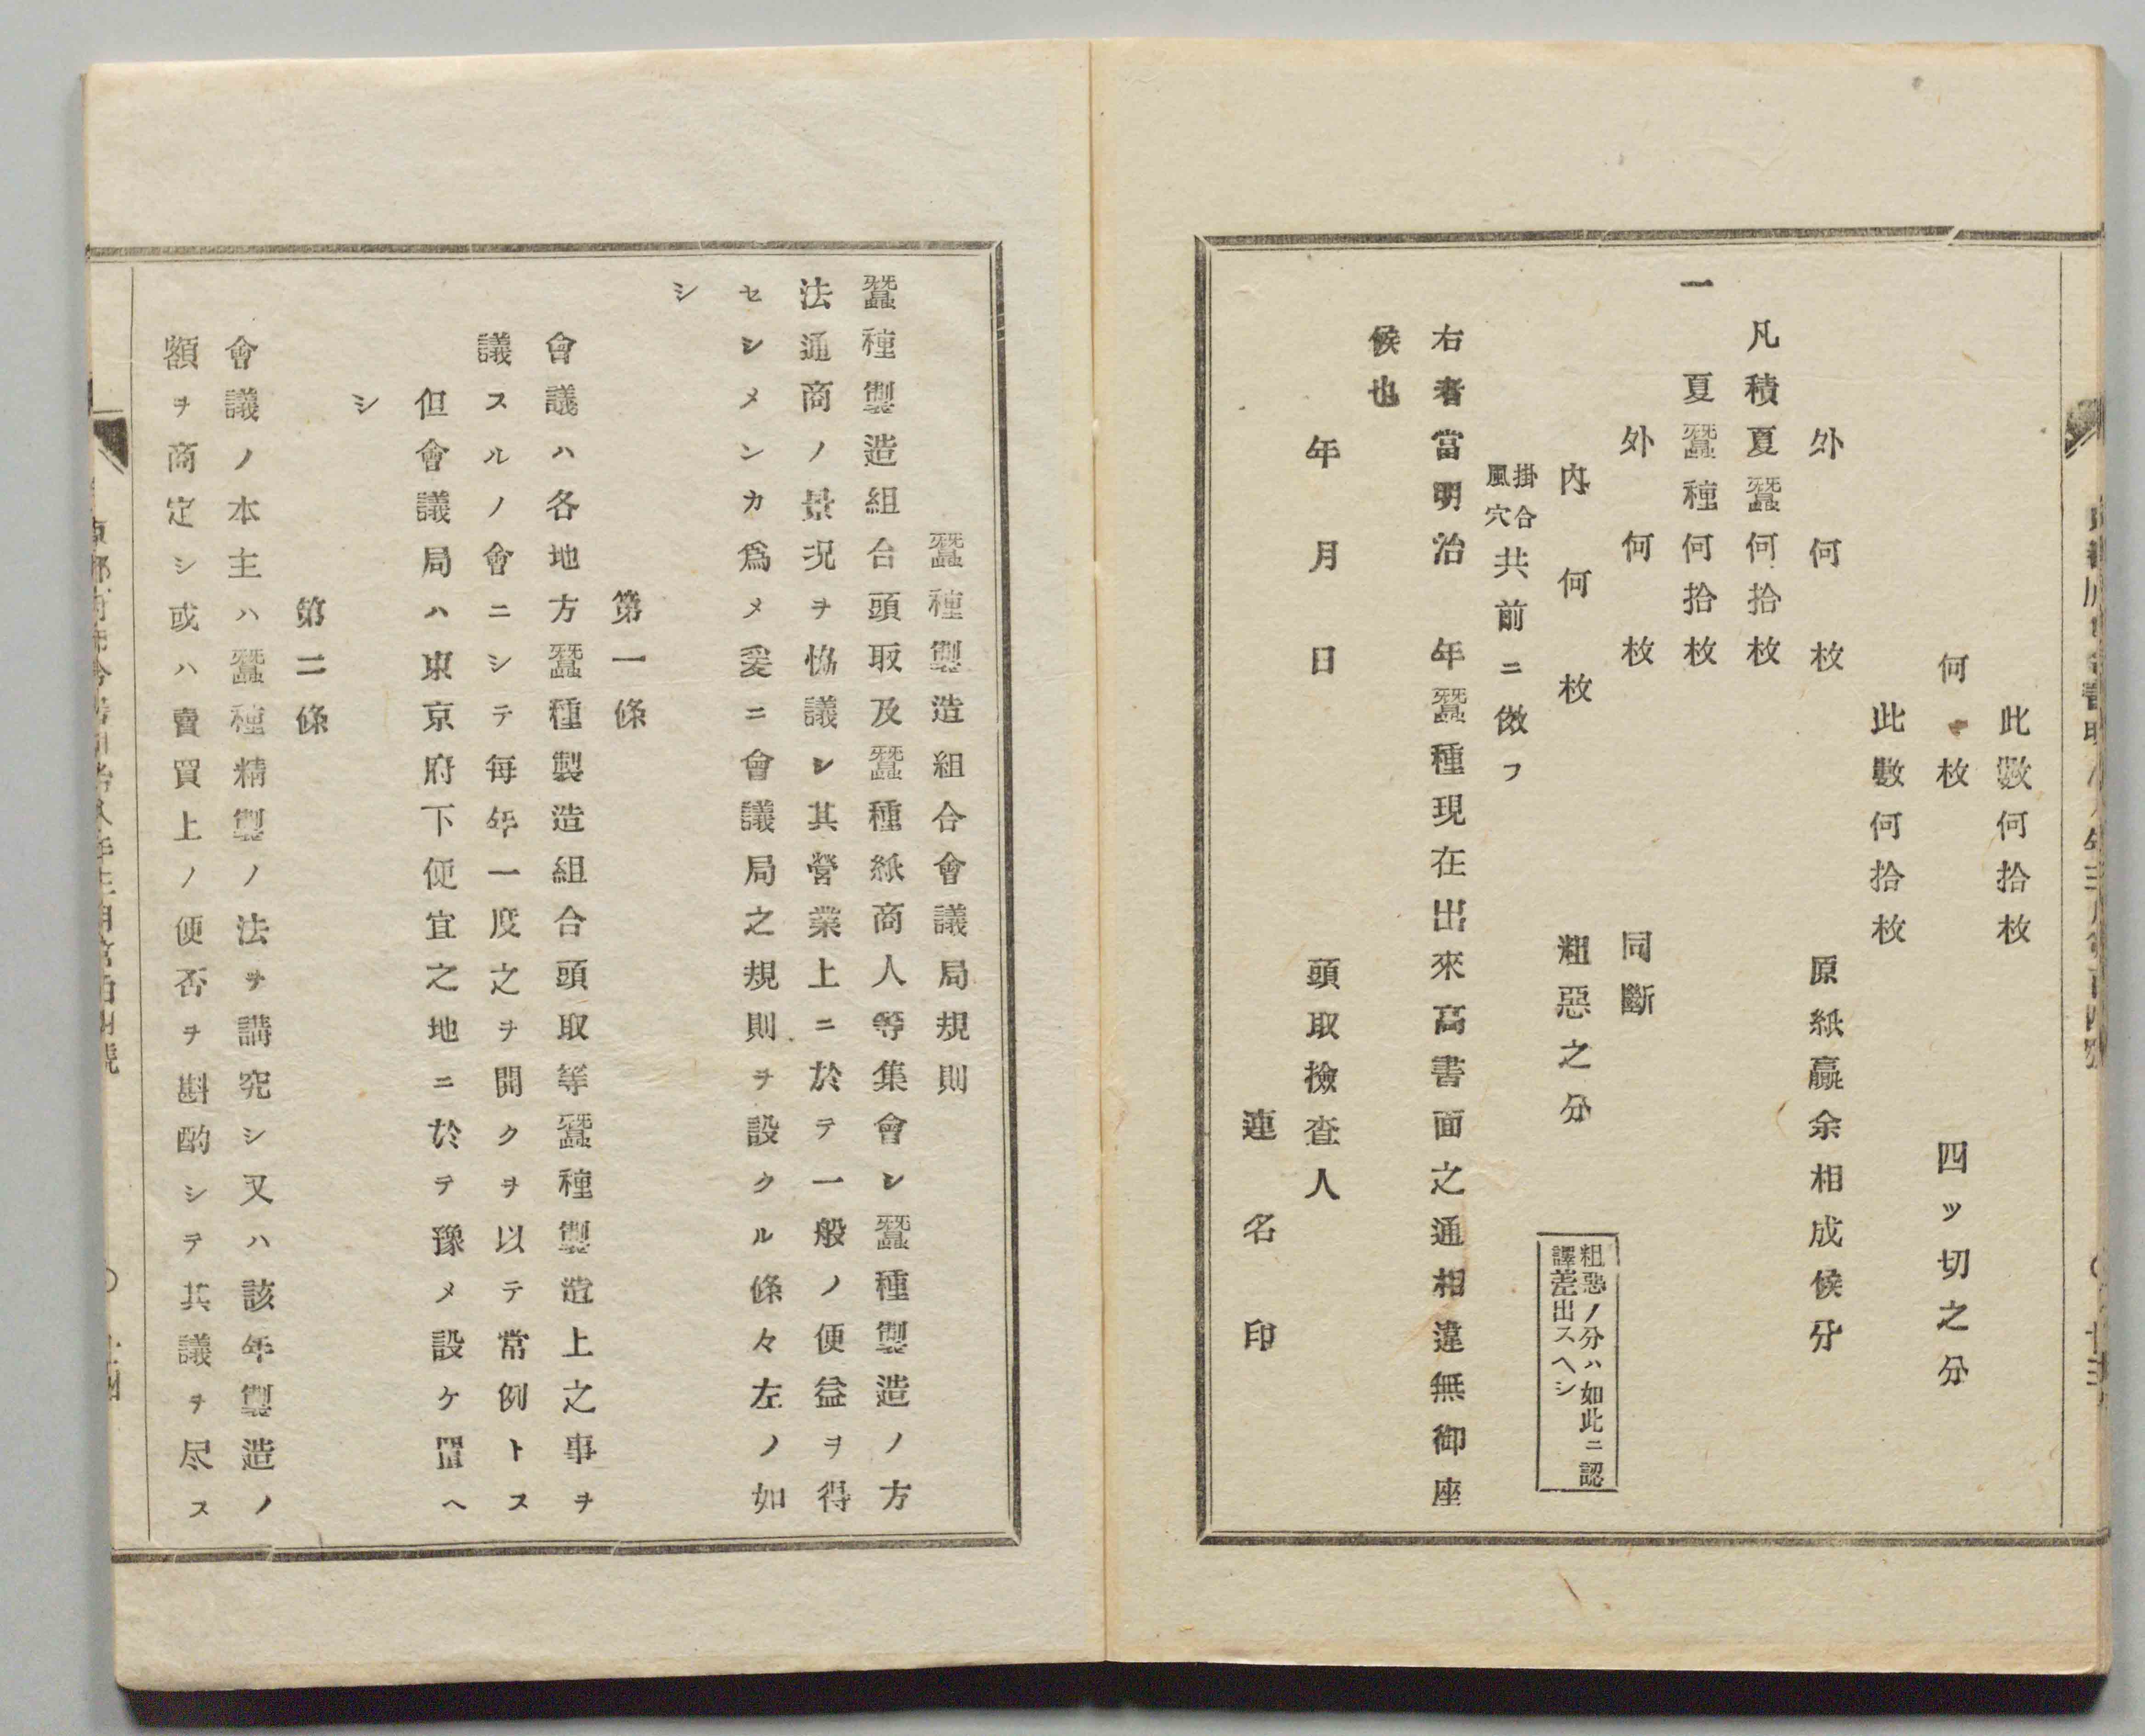 此數何拾枚
何枚　四ッ切之分
此數何拾枚
外何枚　原紙贏余相成候分
凡積夏蠶何拾枚
一　夏蠶種何拾枚
外何枚　同斷
内何枚　粗惡之分
粗惡ノ分ハ如此ニ認
譯差出スヘシ
掛合
風穴
共前ニ傚フ
右者當明治　年蠶種現在出來高書面之通相違無御座
候也
年月日　頭取撿査人
連名印
蠶種製造組合會議局規則
蠶種製造組合頭取及蠶種紙商人等集會シ蠶種製造ノ方
法通商ノ景況ヲ恊議シ其營業上ニ於テ一般ノ便益ヲ得
セシメンカ爲メ爰ニ會議局之規則ヲ設クル條々左ノ如
シ
第一條
會議ハ各地方蠶種製造組合頭取等蠶種製造上之事ヲ
議スルノ會ニシテ毎年一度之ヲ開クヲ以テ常例トス
但會議局ハ東京府下便宜之地ニ於テ豫メ設ケ置ヘ
シ
第二條
會議ノ本主ハ蠶種精製ノ法ヲ講究シ又ハ該年製造ノ
額ヲ商定シ或ハ賣買上ノ便否ヲ斟酌シテ其議ヲ尽ス